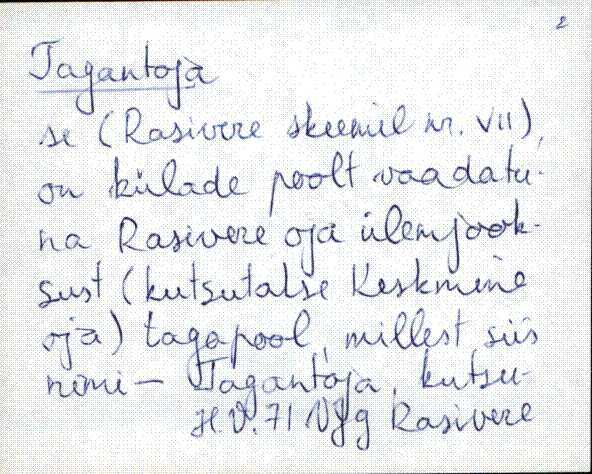 2
Tagantoja
se (Rasivere skeemil nr. VII),
on külade poolt vaadatu-
na Rasivere oja ülemjook-
sust (kutsutakse Keskmine
oja) tagapool, millest siis
nimi — Tagantoja, kutsu-
H.V. 71 VJg Rasivere